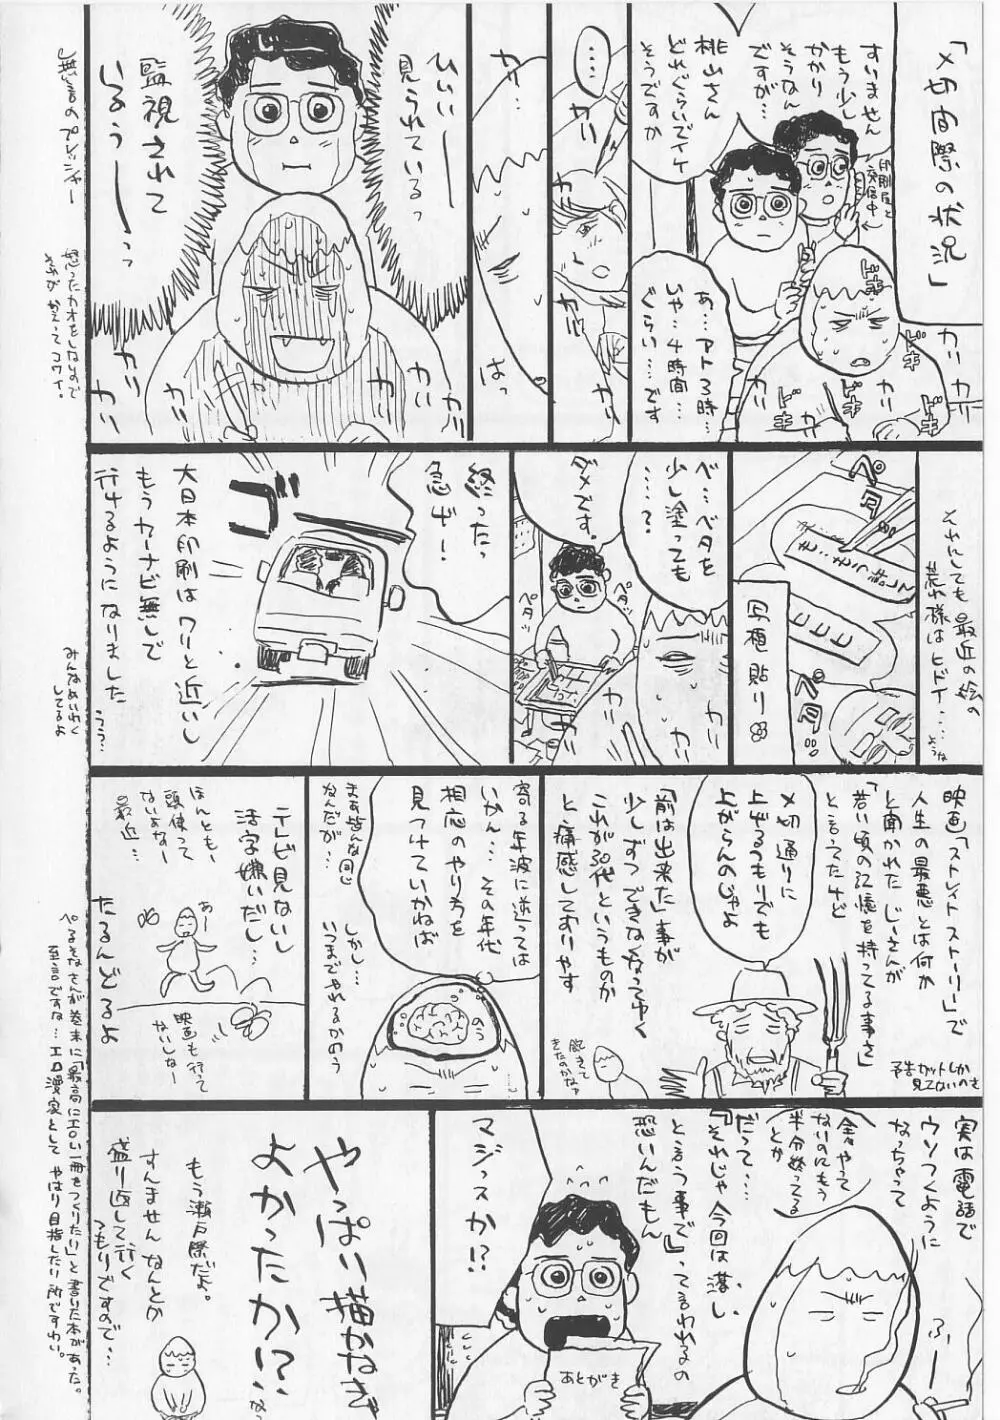 「〆切間際の状況」
すいません
もう少し
かかり
そうなん
ですが…
印刷屋と
交信中
桃山さん
どれぐらいでイケ
そうですか
あ…アト3時…
いや…4時間…
ぐらい……です
ドキ
ドキ
ドキ
ドキ
カリ
カリ
……
カリ
カリ
カリ
カリ…
はっ
ひいぃ——
見られているっ
監視されて
いるうー——っ
カリ
カリ
カリ
カリ
無言のプレッシャー
怒ったカオをしないので
それが かえってコワイ。
それにしても最近の絵の
荒れ様はヒドイ…
ような
ペタ
ペタ
写植貼り
ベ…ベタを
少し塗っても
……?
ダメです。
ペタッ
ペタッ
カリ
カリ
終ったっ
急げ!
ゴ
大日本印刷はワリと近いし
もうカーナビ無しで
行けるようになりました
うう…
みんなめいわく
してるよ
映画「ストレイトストーリー」で
人生の最悪とは何か
と聞かれたじーさんが
「若い頃の記憶を持ってる事さ」
と言ってたけど
予告カットしか
見てないのさ
〆切通りに
上げるつもりでも
上がらんのじゃよ
「前は出来た」事が
少しずつできなくなってゆく
これが30代というものか
と、痛感しておりやす
飽きて
きたのかなァ
寄る年波に逆っては
いかん…その年代
相応のやり方を
見つけていかねば
のう
まあ皆んな同じ
なんだが…
しかし…
いつまでやれるかのう
テレビ見ないし
活字嫌いだし…
ほんともー
頭使って
ないよなー
最近…
あー
映画も行って
ないしなー
たるんどるよ
実は電話で
ウソつくように
なっちゃって
全然やって
ないのにもう
半分終ってる
とか
ふー
だって…
『それじゃ今回は落し
と言う事で』って言われるの
恐いんだもん
マジっスか!?
あとがき
やっぱい描かなき
よかったかい?
なっ
もう瀬戸際だよ。
すんません なんとか
盛り返して行く
つもりですので…
ぺるそなさんが巻末に「最高にエロい一冊をつくりたい」と書いた本があった。
至言ですな…エロ漫家として やはり目指したい所ですわい。